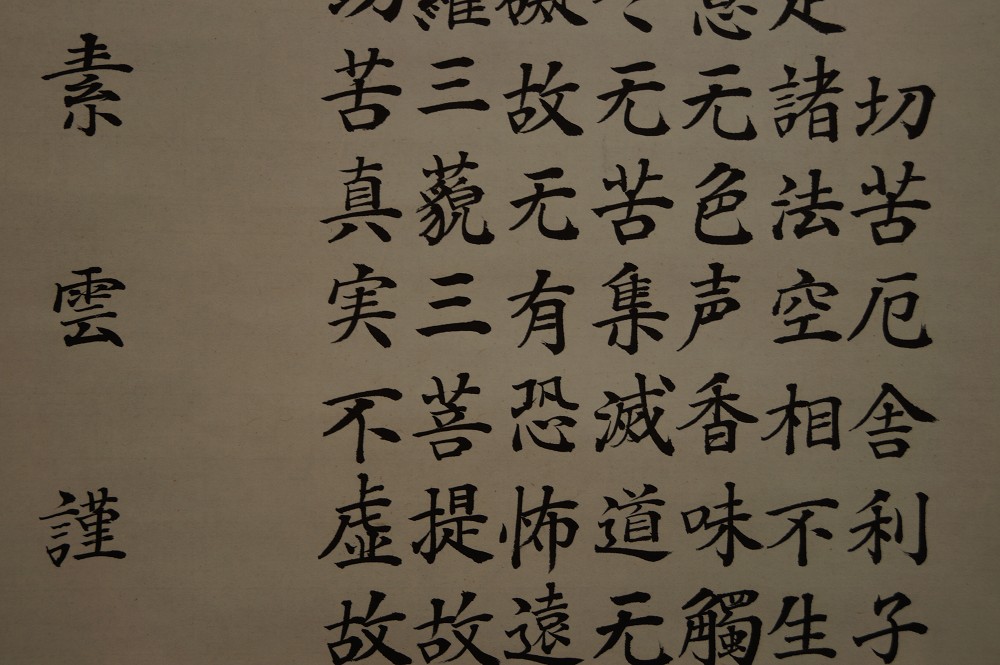 切苦厄舎利子
是諸法空相不生
意无色声香味觸
无苦集滅道无
礙故无有恐怖遠
羅三藐三菩提故
切苦真実不虚故
素雲謹